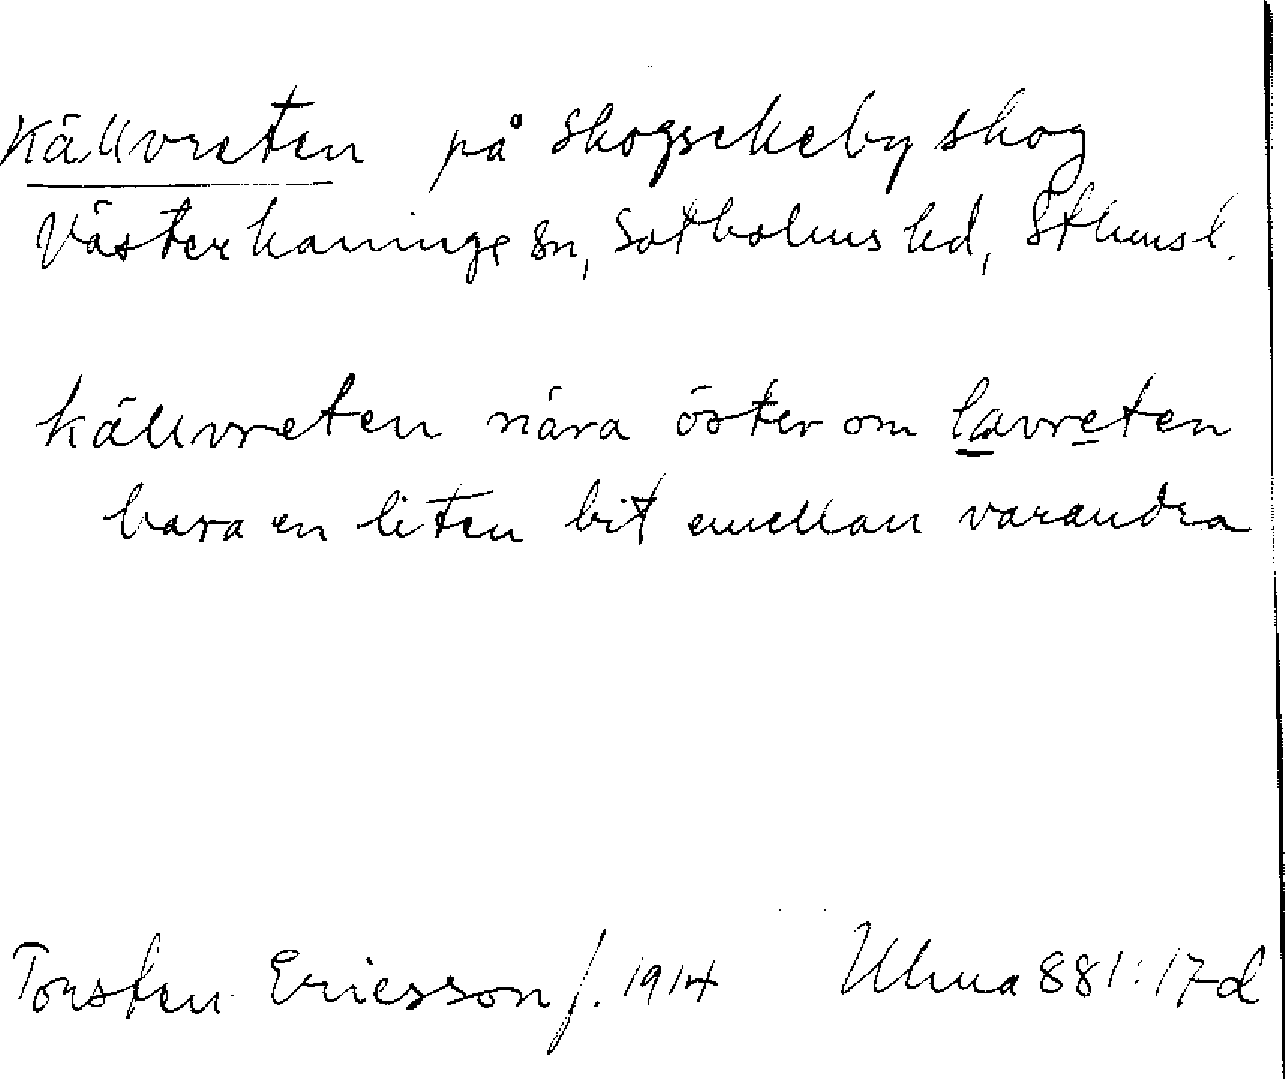 Källvreten på Skogsekeby skog
Västerhaninge sn, Sotholms hd, Sthms l.
Källvreten nära öster om lavreten
bara en liten bit emellan varandra
Torsten Ericsson f. 1914 Ulma 881:17d